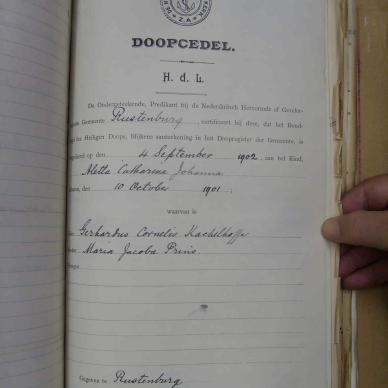 DOOPCEDEL.
H. d. L.
De Ondergeteekende, Predikant bij de Nederduitsch Hervormde of Gerefor-
Gemeente Rustenburg, certificeert bij deze, dat het Bond-
Heiligen Doops, blijkens aanteekening in het Doopregister der Gemeente, is
4 September 1902 aan het Kind,
Aletta Catharina Johanna
den 10 October 1901;
waarvan is
Gerhardus Cornelis Kachelhoffe
Maria Jacoba Prins.
Gegeven te Rustenburg